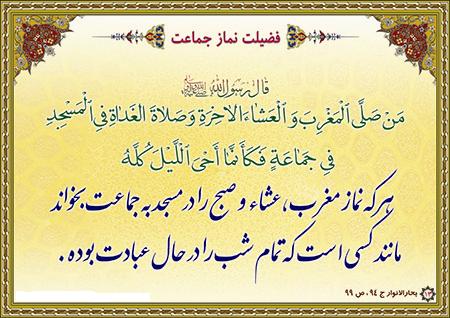 فضیلت نماز جماعت
قالَ رَسولُ اللّٰه ﷺ
مَنْ صَلَّی الْمَغْرِبَ وَ الْعَشاءَ الاخِرَةِ وَ صَلاةَ الغَداةِ فِی الْمَسْجِدِ
فی جَماعَةٍ فَکَأَنَّما أَحْیَی اللَّیْلَ کُلَّهُ
هر که نماز مغرب، عشاء و صبح را در مسجد به جماعت بخواند
مانند کسی است که تمام شب را در حال عبادت بوده.
بحارالانوار ج ٩٤، ص ٩٩